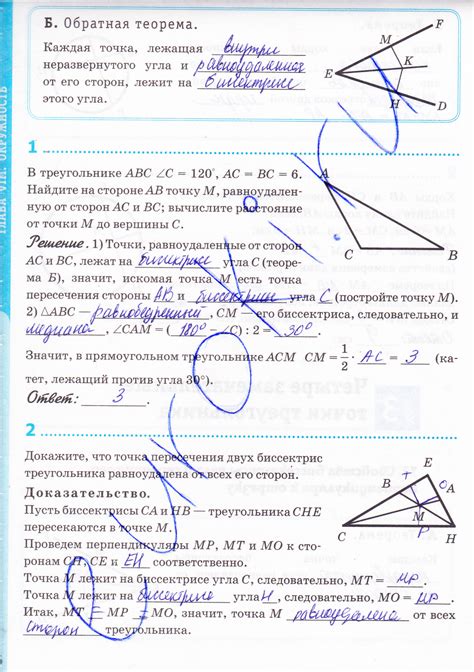 Б. Обратная теорема.
Каждая точка, лежащая внутри
неразвернутого угла и равноудаленная
от его сторон, лежит на биссектрисе
этого угла.
F
M
K
E
H
D
ГЛАВА VIII. ОКРУЖНОСТЬ
1
В треугольнике ABC ∠C = 120°, AC = BC = 6.
Найдите на стороне AB точку M, равноудален-
ную от сторон AC и BC; вычислите расстояние
от точки M до вершины C.
A
C
B
Решение. 1) Точки, равноудаленные от сторон
AC и BC, лежат на биссектрисе угла C (теоре-
ма Б), значит, искомая точка M есть точка
пересечения стороны AB и биссектрисы угла C (постройте точку M).
2) △ABC — равнобедренный, CM — его биссектриса, следовательно, и
медиана, ∠CAM = ( 180° − ∠C) : 2 = 30°.
Значит, в прямоугольном треугольнике ACM CM = 1/2 · AC = 3 (ка-
тет, лежащий против угла 30°).
Ответ: 3.
2
Докажите, что точка пересечения двух биссектрис
треугольника равноудалена от всех его сторон.
Доказательство.
Пусть биссектрисы CA и HB — треугольника CHE
пересекаются в точке M.
Проведем перпендикуляры MP, MT и MO к сто-
ронам CH, CE и EH соответственно.
E
B
T
O
A
M
C
P
H
Точка M лежит на биссектрисе угла C, следовательно, MT = MP.
Точка M лежит на биссектрисе угла H, следовательно, MO = MP.
Итак, MT = MP = MO, значит, точка M равноудалена от всех
сторон треугольника.